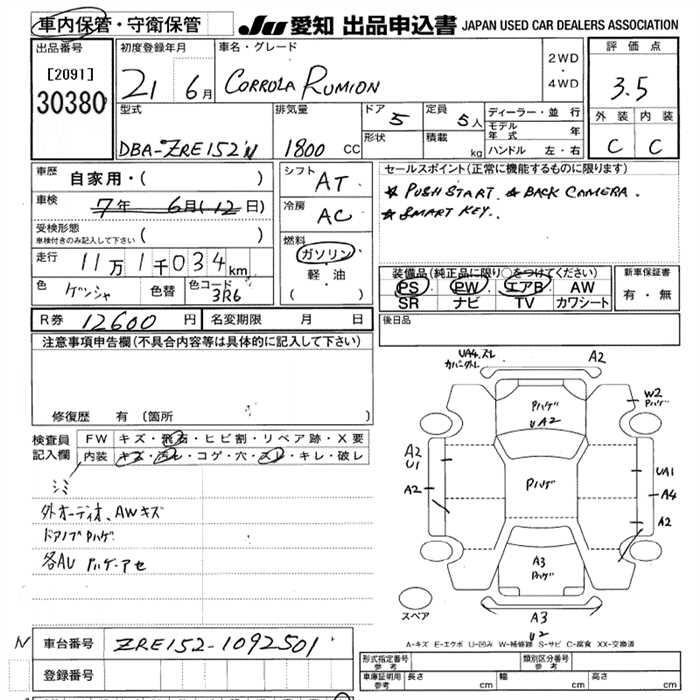 車内保管・守衛保管
JU 愛知 出品申込書 JAPAN USED CAR DEALERS ASSOCIATION
出品番号
[2091]
30380
初度登録年月
21 6月
車名・グレード
CORROLA RUMION
2WD
・
4WD
評価点
3.5
外装 内装
C C
型式
DBA-ZRE152N
排気量
1800 CC
ドア 5
形状
定員 5人
積載 kg
ディーラー・並行
モデル年式 年
ハンドル 左・右
車歴
自家用・( )
車検
7年 6月(12日)
受検形態
車検付きのみ記入して下さい ( )
走行
11万1千034km
色 ゲンシャ 色替 色コード 3R6
シフト AT
冷房 AC
燃料
ガソリン
軽・油
( )
セールスポイント(正常に機能するものに限ります)
☆ PUSH START. ☆ BACK CAMERA.
☆ SMART KEY.
装備品(純正品に限り○をつけてください)
PS PW エアB AW
SR ナビ TV カワシート
新車保証書
有・無
R券 12600円 名変期限 月 日
後日品
注意事項申告欄(不具合内容等は具体的に記入して下さい)
修復歴 有(箇所 )
検査員記入欄
FW キズ・飛石・ヒビ割・リペア跡・X要
内装 キズ・汚レ・コゲ・穴・スレ・キレ・破レ
外オーディオ、AWキズ
ドアノブPハゲ
各AU Pハゲ・アセ
UA4.スレ
A2
W2
Pハゲ
Pハゲ
UA2
A2
U1
A2
Pハゲ
UA1
A4
A2
A3
Pハゲ
スペア
A3
U2
A-キズ E-エクボ U-凹み W-補修跡 S-サビ C-腐食 XX-交換済
N 車台番号 ZRE152-1092501
登録番号
形式指定番号 参考
類別区分番号 参考
車庫証明用 参考 長さ cm 幅 cm 高さ cm